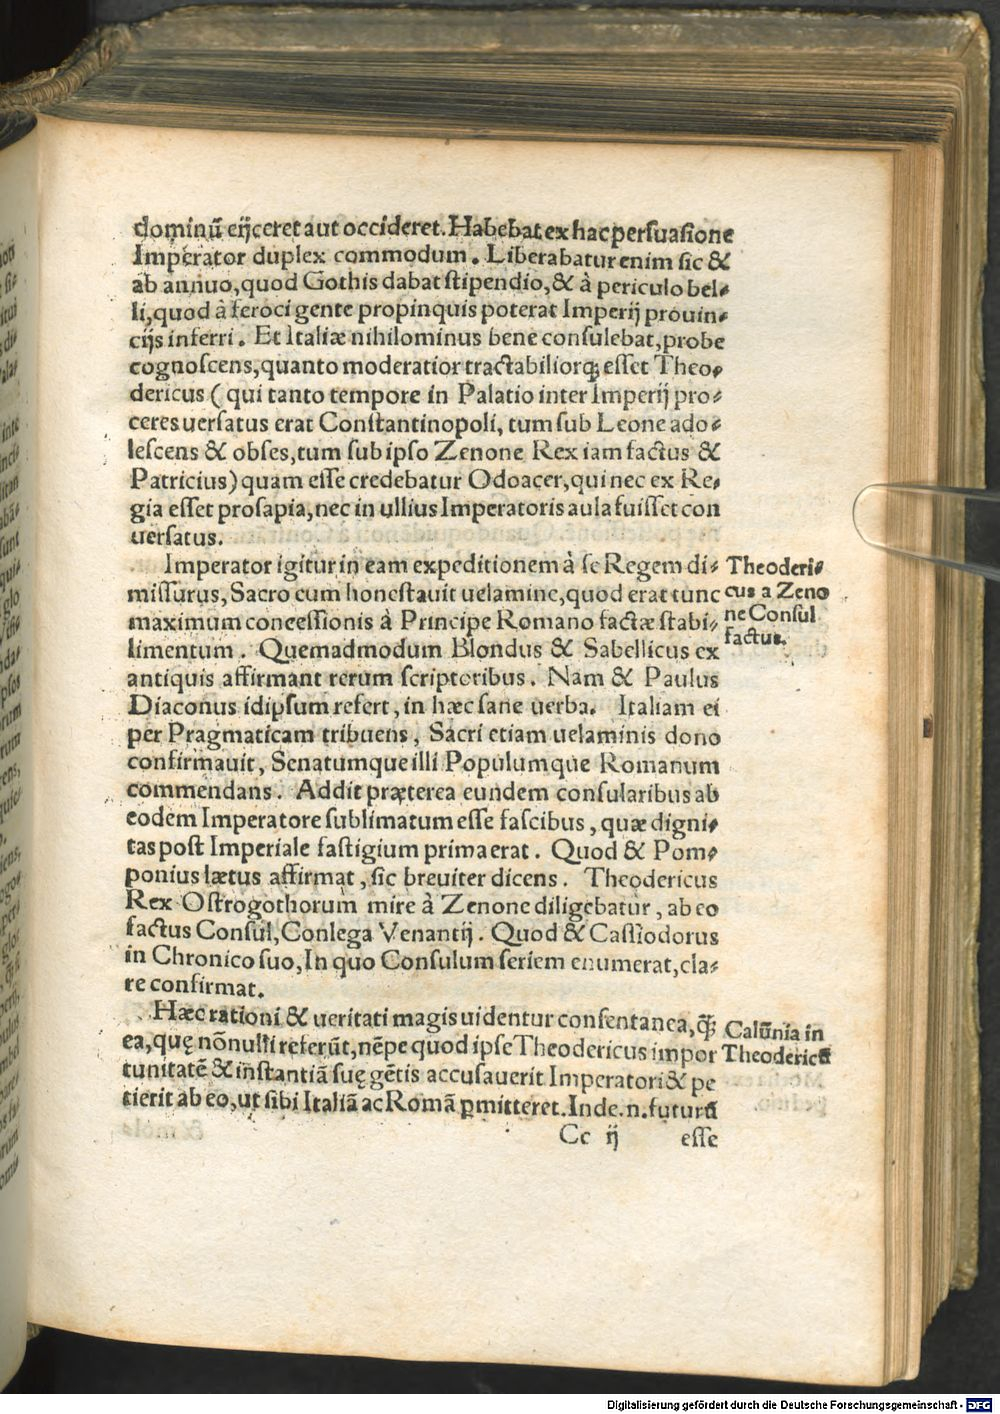 dominū eijceret aut occideret. Habebat ex hac persuasione
Imperator duplex commodum. Liberabatur enim sic &
ab annuo, quod Gothis dabat stipendio, & à periculo bel⸗
li, quod à feroci gente propinquis poterat Imperij prouin⸗
cijs inferri. Et Italiæ nihilominus bene consulebat, probe
cognoscens, quanto moderatior tractabiliorq; esset Theo⸗
dericus (qui tanto tempore in Palatio inter Imperij pro⸗
ceres uersatus erat Constantinopoli, tum sub Leone ado⸗
lescens & obses, tum sub ipso Zenone Rex iam factus &
Patricius) quam esse credebatur Odoacer, qui nec ex Re⸗
gia esset prosapia, nec in ullius Imperatoris aula fuisset con
uersatus.
Imperator igitur in eam expeditionem à se Regem di⸗
missurus, Sacro eum honestauit uelamine, quod erat tunc
maximum concessionis à Principe Romano factæ stabi⸗
limentum. Quemadmodum Blondus & Sabellicus ex
antiquis affirmant rerum scriptoribus. Nam & Paulus
Diaconus idipsum refert, in hæc sane uerba. Italiam ei
per Pragmaticam tribuens, Sacri etiam uelaminis dono
confirmauit, Senatumque illi Populumque Romanum
commendans. Addit præterea eundem consularibus ab
eodem Imperatore sublimatum esse fascibus, quæ digni⸗
tas post Imperiale fastigium prima erat. Quod & Pom⸗
ponius lætus affirmat, sic breuiter dicens. Theodericus
Rex Ostrogothorum mire à Zenone diligebatur, ab eo
factus Consul, Conlega Venantij. Quod & Cassiodorus
in Chronico suo, In quo Consulum seriem enumerat, cla⸗
re confirmat.
Theoderi⸗
cus a Zeno
ne Consul
factus.
Hæc rationi & ueritati magis uidentur consentanea, q̃
ea, quę nōnulli referūt, nēpe quod ipse Theodericus impor
tunitatē & instantiā suę gētis accusauerit Imperatori & pe
tierit ab eo, ut sibi Italiā ac Romā ꝑmitteret. Inde .n. futurū
Calūnia in
Theodericū
Cc ij esse
Digitalisierung gefördert durch die Deutsche Forschungsgemeinschaft - DFG